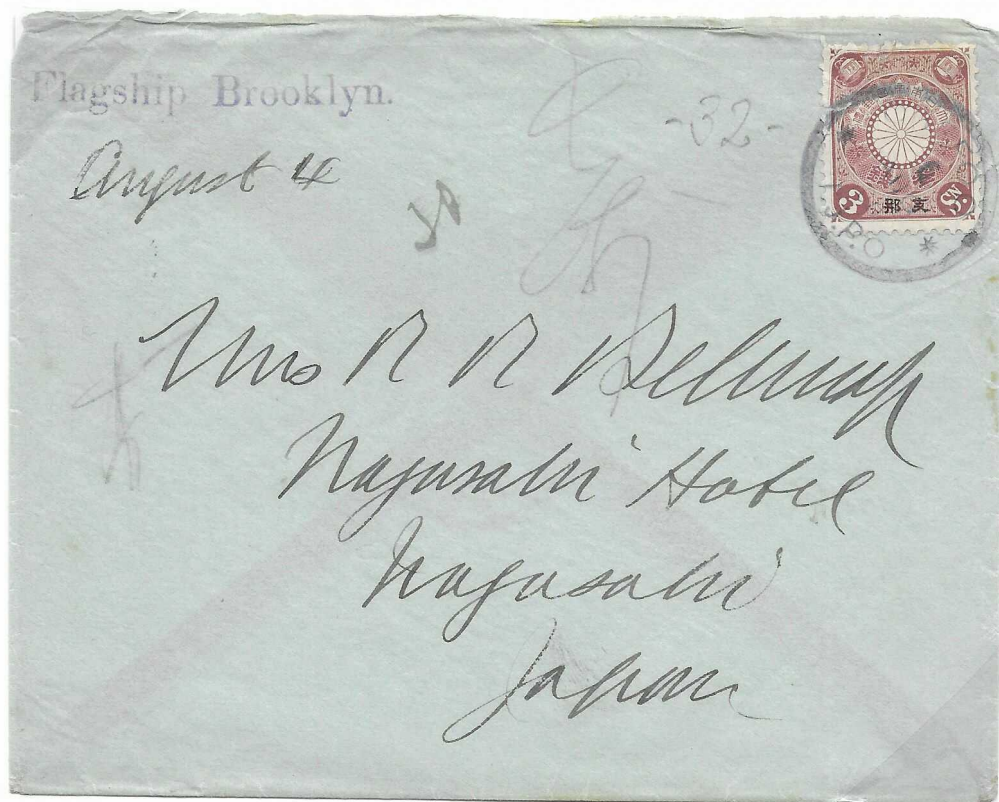 Flagship Brooklyn.
August 4
-32-
3 支那 3 Sn.
I.J.P.O
Mrs R R Belknap
Nagasaki Hotel
Nagasaki
Japan